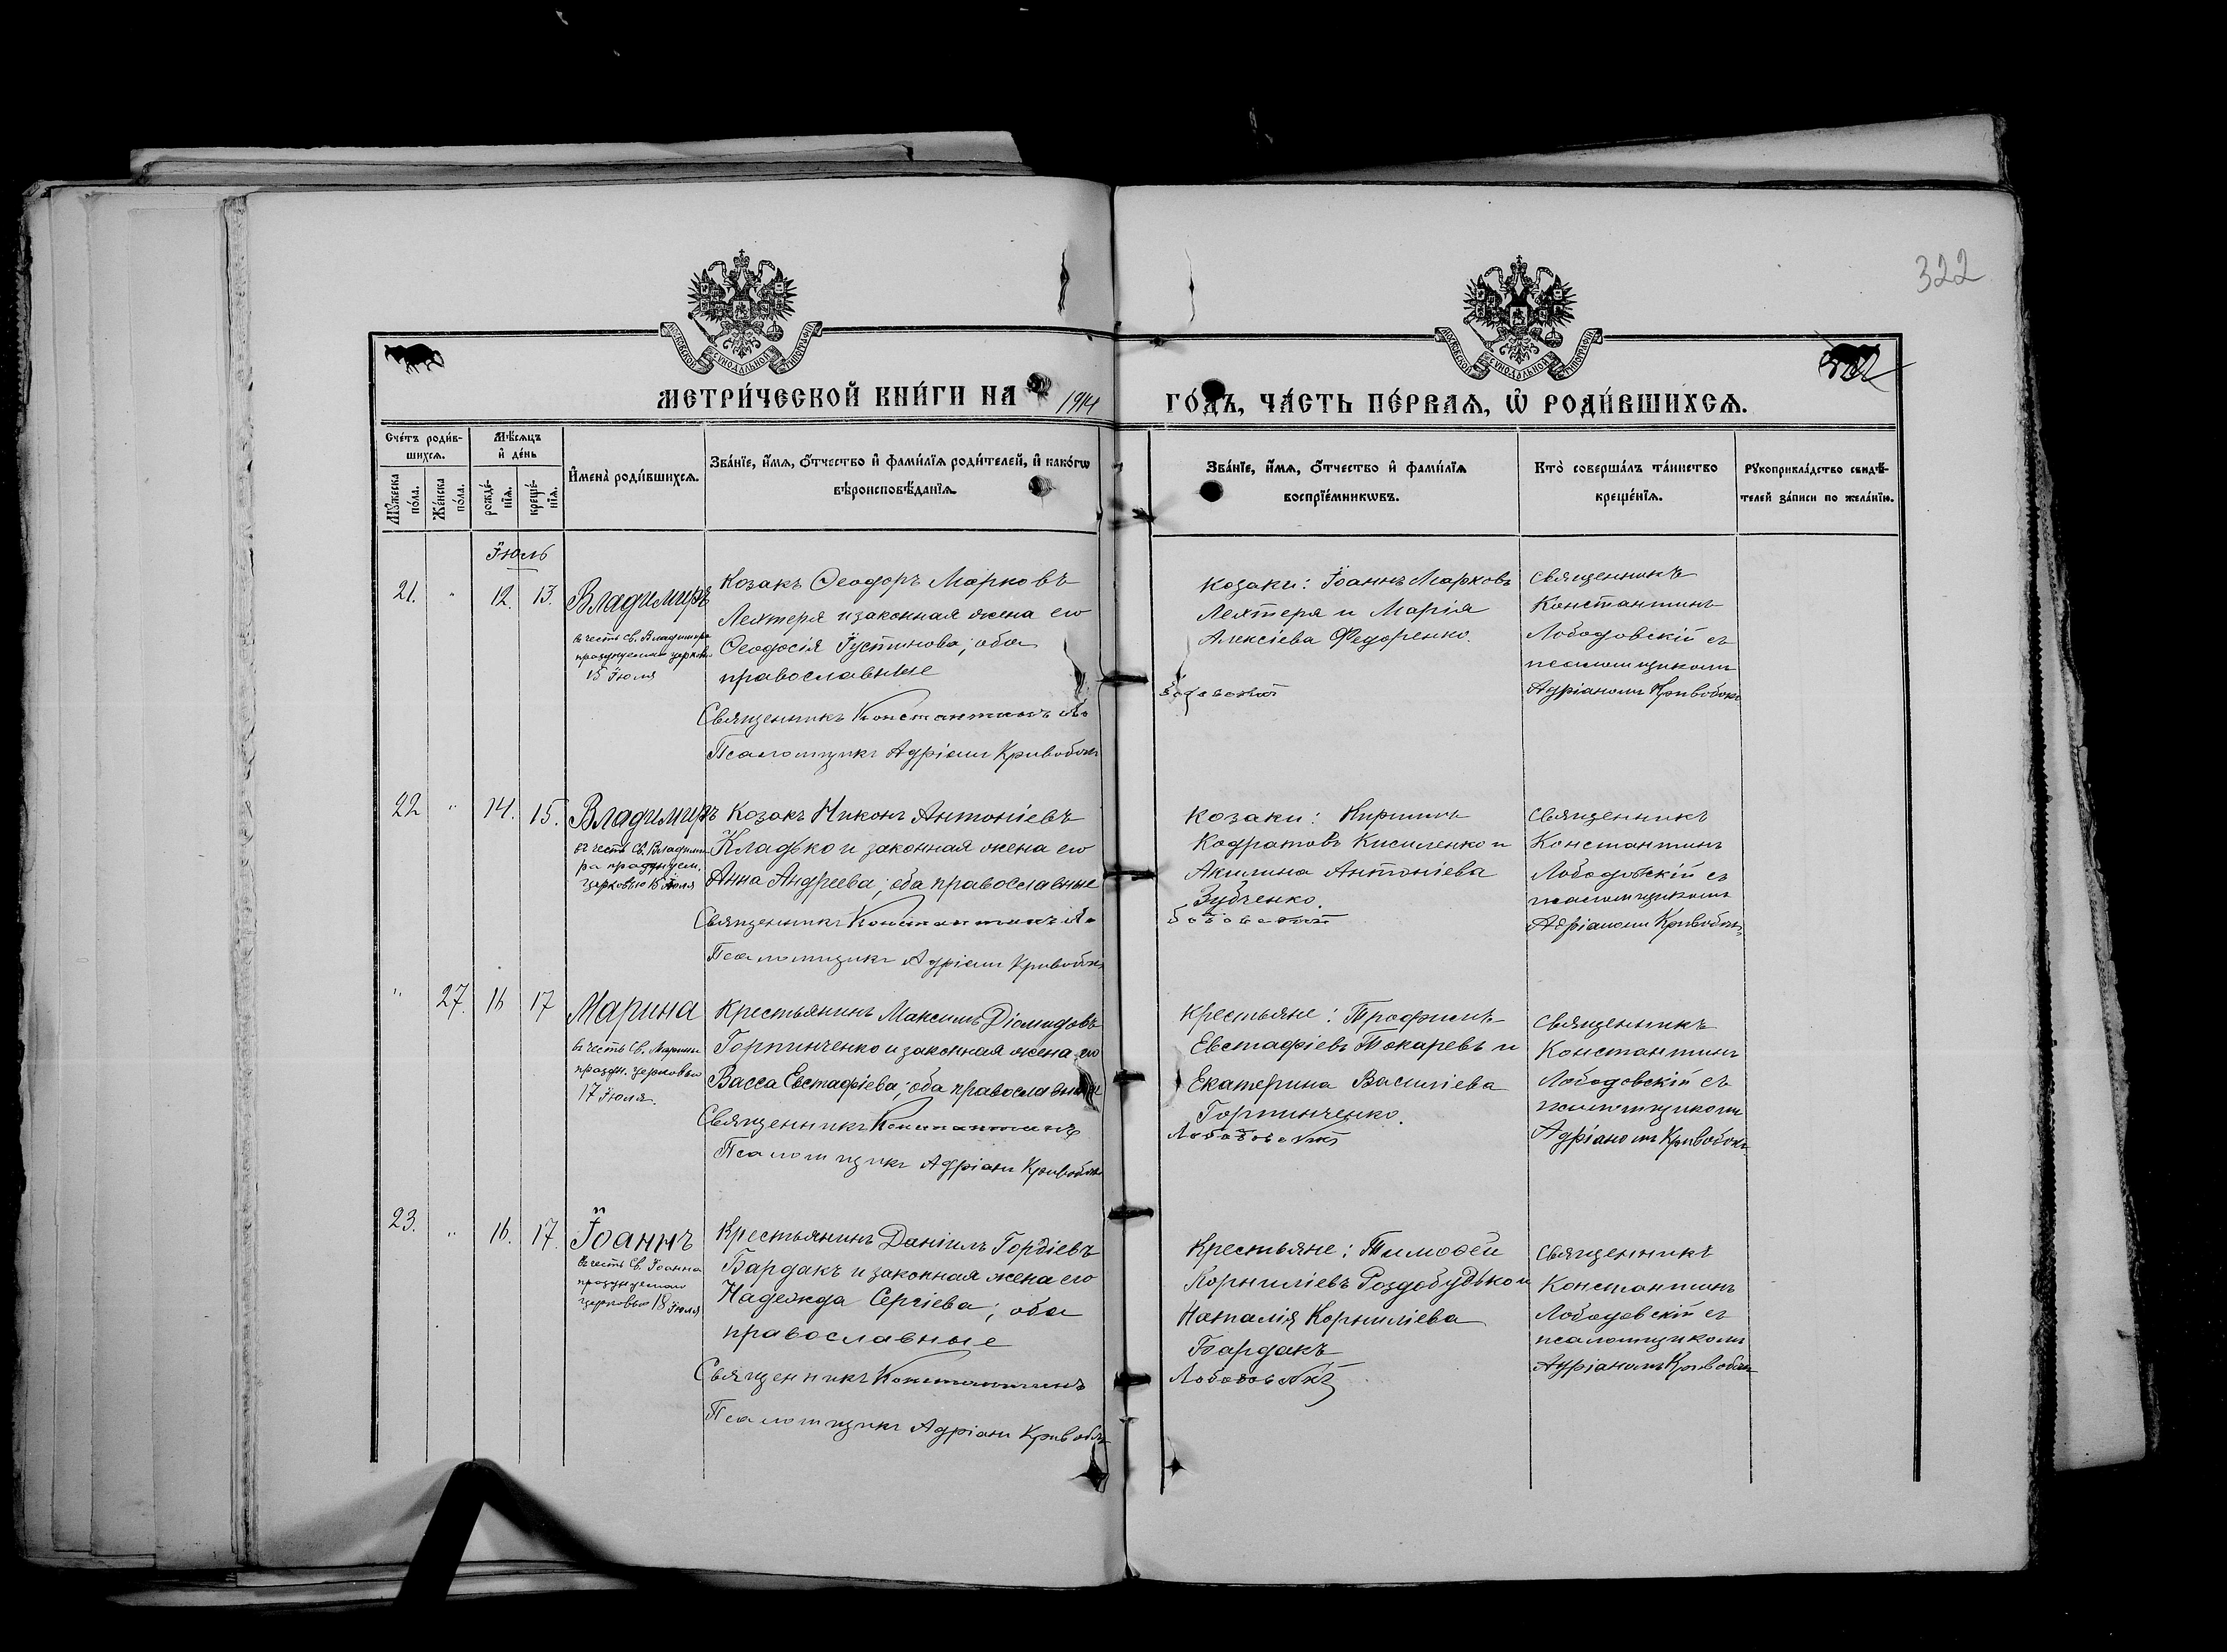 322
МОСКОВСКОЙ СУНОДАЛЬНОЙ ТИПОГРАФІИ
МОСКОВСКОЙ СУНОДАЛЬНОЙ ТИПОГРАФІИ
МЕТРИ́ЧЕСКОЙ КНИ́ГИ НА 1914
ГО́ДЪ, ЧА́СТЬ ПЕ́РВАѦ, Ѽ РОДИ́ВШИХСѦ.
Сче́тъ роди́в-
шихсѧ.
Мꙋ́жеска по́ла.
Же́нска по́ла.
Мѣ́сѧцъ
и҆ де́нь
рожде́-
нїѧ.
креще́-
нїѧ.
И҆мена̀ роди́вшихсѧ.
Зва́нїе, и҆́мѧ, ѻ҆́тчество и҆ фами́лїѧ роди́телей, и҆ како́гѡ
вѣроисповѣ́данїѧ.
Зва́нїе, и҆́мѧ, ѻ҆́тчество и҆ фами́лїѧ
воспрїе́мникѡвъ.
Кто̀ соверша́лъ та́инство
креще́нїѧ.
Рꙋкоприкла́дство свидѣ́-
телей за́писи по жела́нїю.
Іюль
21. " 12. 13. Владимиръ
въ честь Св. Владимира
празднуемаго церков.
15 Іюля
Козакъ Ѳеодоръ Марковъ
Лехтеря и законная жена его
Ѳеодосія Іустинова; оба
православные
Священникъ Константинъ Ло
Псаломщикъ Адріанъ Кривобокъ
Козаки: Іоаннъ Марковъ
Лехтеря и Марія
Алексіева Федоренко.
бодовскій
Священникъ
Константинъ
Лободовскій съ
псаломщикомъ
Адріаномъ Кривобокъ
22 " 14. 15. Владимиръ
въ честь Св. Владими
ра празднуем.
церковію 15 Іюля
Козакъ Никонъ Антоніевъ
Кладько и законная жена его
Анна Андреева; оба православные
Священникъ Константинъ Ло
Псаломщикъ Адріанъ Кривобокъ
Козаки:
Кодратовъ Кисиленко и
Акилина Антоніева
Зубченко.
бодовскій
Священникъ
Константинъ
Лободовскій съ
псаломщикомъ
Адріаномъ Кривобокъ
" 27. 16 17 Марина
въ честь Св. Марины
праздн. церковью
17 Іюля.
Крестьянинъ Максимъ Діомидовъ
Горпинченко и законная жена его
Васса Евстафіева; оба православные
Священникъ Константинъ
Псаломщикъ Адріанъ Кривобокъ
Крестьяне: Трофимъ
Евстафіевъ Токаревъ и
Екатерина Василіева
Горпинченко.
Лободовскій
Священникъ
Константинъ
Лободовскій съ
псаломщикомъ
Адріаномъ Кривобокъ
23. " 16. 17. Іоаннъ
въ честь Св. Іоанна
празднуемаго
церковью 18 Іюля
Крестьянинъ Даніилъ Гордіевъ
Бардакъ и законная жена его
Надежда Сергіева; оба
православные
Священникъ Константинъ
Псаломщикъ Адріанъ Кривобокъ
Крестьяне: Тимоѳей
Корниліевъ Роздобудько и
Наталія Корниліева
Бардакъ
Лободовскій
Священникъ
Константинъ
Лободовскій съ
псаломщикомъ
Адріаномъ Кривобокъ